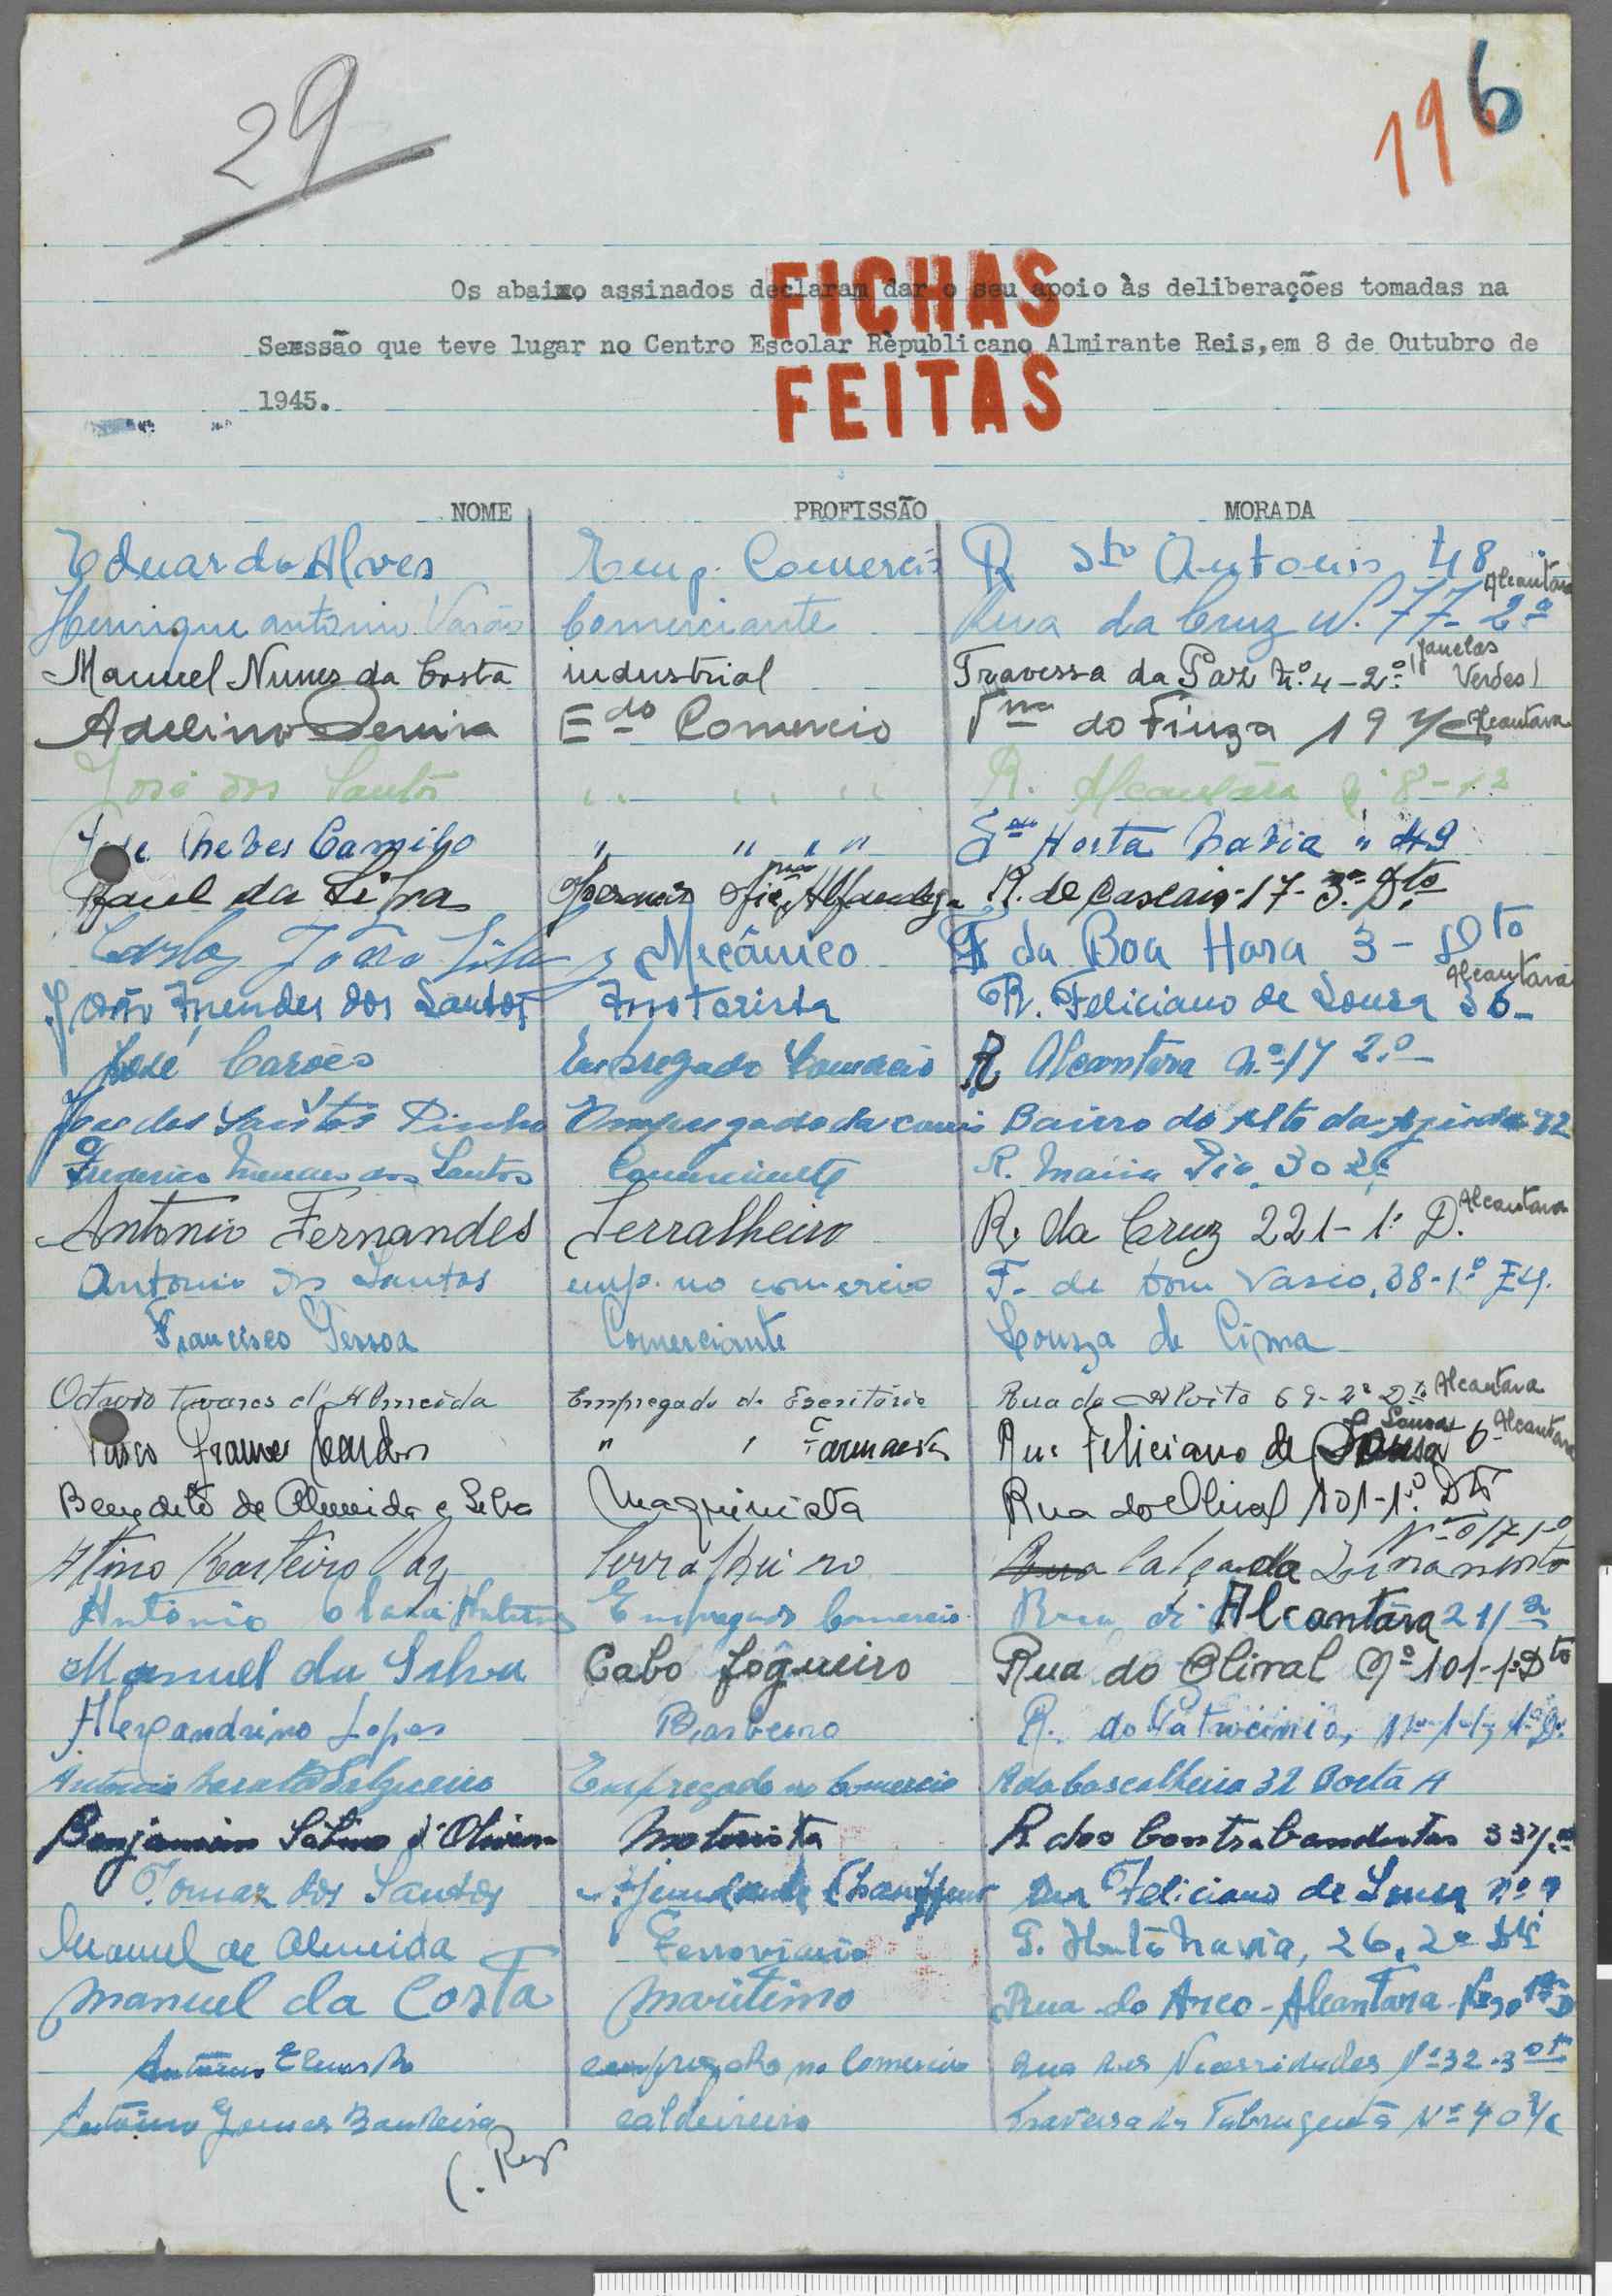 29
196
FICHAS
Os abaixo assinados declaram dar o seu apoio às deliberações tomadas na
Sessão que teve lugar no Centro Escolar Republicano Almirante Reis, em 8 de Outubro de
FEITAS
1945.
NOME PROFISSÃO MORADA
Eduardo Alves Emp. Comercio R Sto Antonio 48
Alcantara
Henrique Antonio Varão Comerciante Rua da Cruz Nº 77-2º
Manuel Nunes da Costa industrial Travessa da Paz nº 4-2º (Janelas Verdes)
Adelino Edo Comercio do Fiuza 19 Alcantara
José dos Santos " " " R. Alcantára 8-
José Camilo " " " " Horta Navia " 49
Raul da Silva Alfandega R. de Cascais-17-3º Dto
Carlos João Silva Mecânico T da Boa Hora 3-Dto
Alcantara
João Mendes dos Santos Motorista R. Feliciano de Sousa 36-
José Empregado Comercio R Alcantara nº 17 2.º
José dos Santos Pinho Empregado da carris Bairro do Alto da Ajuda
Frederico Mendes dos Santos Comerciante R. Maria Pia 30
Antonio Fernandes Serralheiro R. da Cruz 221-1º D. Alcantara
Antonio dos Santos emp. no comercio T. de Dom Vasco, 38-1º Esq.
Francisco Pessoa Comerciante de Cima
Octavio Tavares d'Almeida Empregado de Escritório Rua do Alvito 69-2º Dto Alcantara
Vasco " " Farmacia Rua Feliciano de Sousa 6- Alcantara
Benedito de Almeida e Silva Maquinista Rua do Olival 101-1.º Dto
Vaz Serralheiro Calçada Livramento Nº
Antonio Empregado Comercio Rua de Alcantára 21
Manuel da Silva Cabo fogueiro Rua do Olival Nº 101-1º Dto
Alexandrino Lopes Barbeiro R. do Patrocinio,
Antonio Salgueiro Empregado no Comercio R da Cascalheira 32 Porta A
Benjamim d'Oliveira Motorista R. dos Contrabandistas 33
Tomaz dos Santos Ajudante Chauffeur Rua Feliciano de Sousa nº 9
Manuel de Almeida Ferroviario T. Horta Navia, 26, 2º Dto
Manuel da Costa Maritimo Rua do Arco-Alcantara
Antonio empregado no Comercio Rua das Necessidades Nº 32-3º
Antonio Gomes Bandeira caldeireiro Travessa da Nº 40